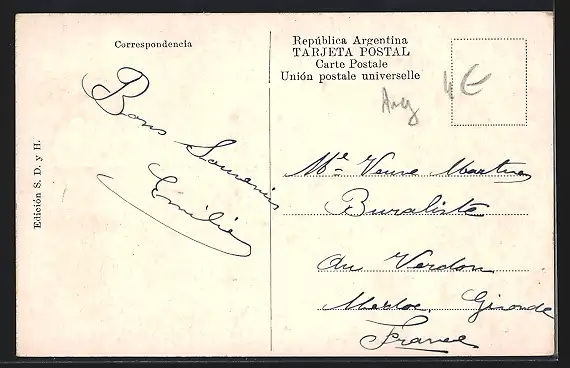 Correspondencia
República Argentina
TARJETA POSTAL
Carte Postale
Unión postale universelle
Arg 4€
Bons Souvenirs
Emilie
Edición S. D. y H.
Veuve
Buraliste
Au Verdon
Medoc. Gironde
France